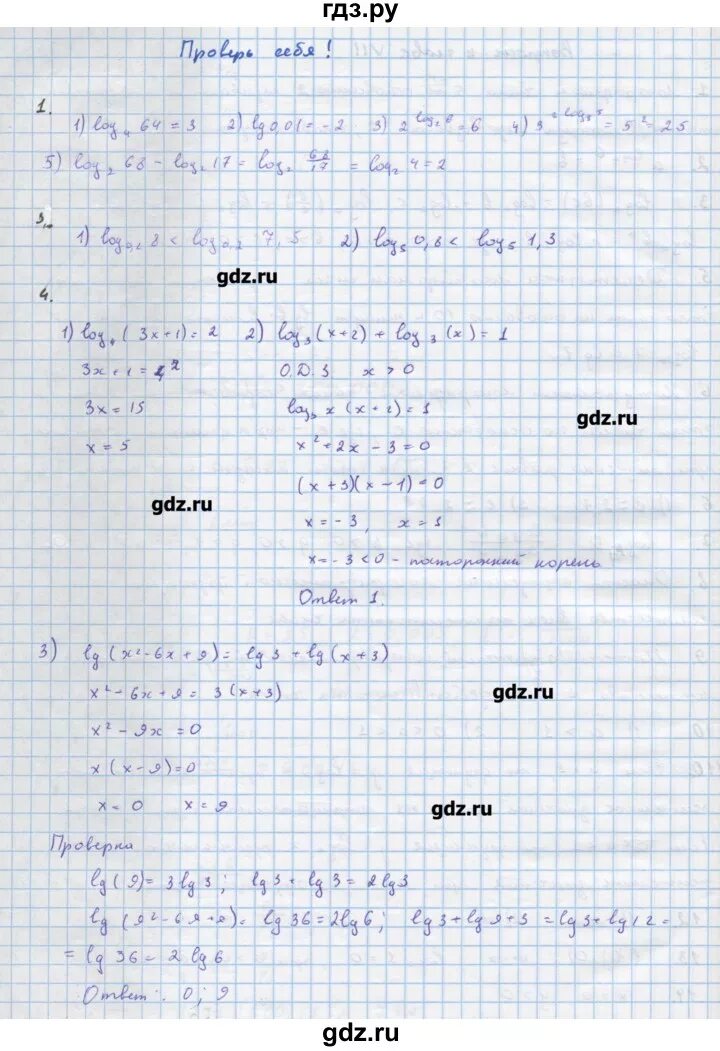 гдз.ру
Проверь себя!
1.
1) log₄ 64 = 3 2) lg 0,01 = -2 3) 2^log₂6 = 6 4) 3^2log₃5 = 5² = 25
5) log₂ 68 - log₂ 17 = log₂ 68/17 = log₂ 4 = 2
3.
1) log₀,₂ 8 < log₀,₂ 7,5 2) log₅ 0,8 < log₅ 1,3
gdz.ru
4.
1) log₄ (3x+1) = 2 2) log₃ (x+2) + log₃ (x) = 1
3x+1 = 4² О.Д.З x > 0
3x = 15 log₃ x (x+2) = 1
gdz.ru
x = 5 x² + 2x - 3 = 0
(x+3)(x-1) = 0
gdz.ru
x = -3, x = 1
x = -3 < 0 - посторонний корень
Ответ 1.
3) lg (x²-6x+9) = lg 3 + lg (x+3)
x²-6x+9 = 3(x+3)
gdz.ru
x² - 9x = 0
x(x-9) = 0
x = 0 x = 9
gdz.ru
Проверка
lg(9) = 3lg3; lg3 + lg3 = 2lg3
lg (9²-6·9+9) = lg 36 = 2lg6; lg3 + lg9+3 = lg3 + lg12 =
= lg 36 = 2 lg6
Ответ: 0; 9
gdz.ru